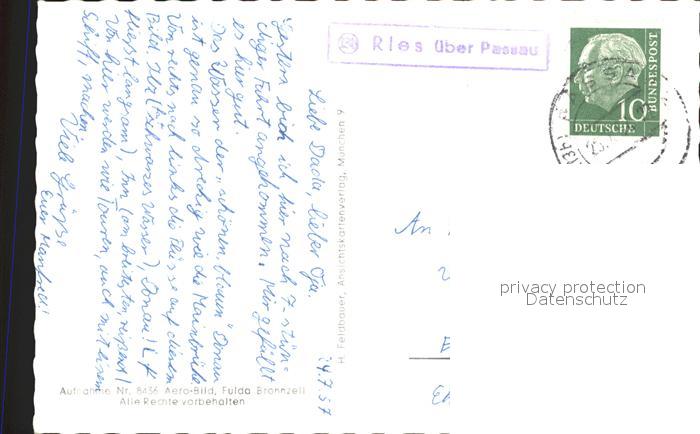 Ries über Passau
10
DEUTSCHE
BUNDESPOST
24.7.57
Liebe Dada, lieber Opa.
Gestern bin ich hier nach 7-stün-
diger Fahrt angekommen. Mir gefällt
es hier gut.
Das Wasser der „schönen, blauen" Donau
ist genau so dreckig wie die Mainbrühe.
Von rechts nach links die Flüsse auf diesem
Bild: Ilz (schwarzes Wasser), Donau!
fließt langsam), Inn (am breitesten, reißend)
Von hier werden wir Touren, auch mit einem
Schiff, machen.
Viele Grüße
Euer Manfred!
H. Feldbauer, Ansichtskartenverlag, München 9
Aufnahme Nr. 8456 Aero-Bild, Fulda Bronnzell
Alle Rechte vorbehalten
An
privacy protection
Datenschutz